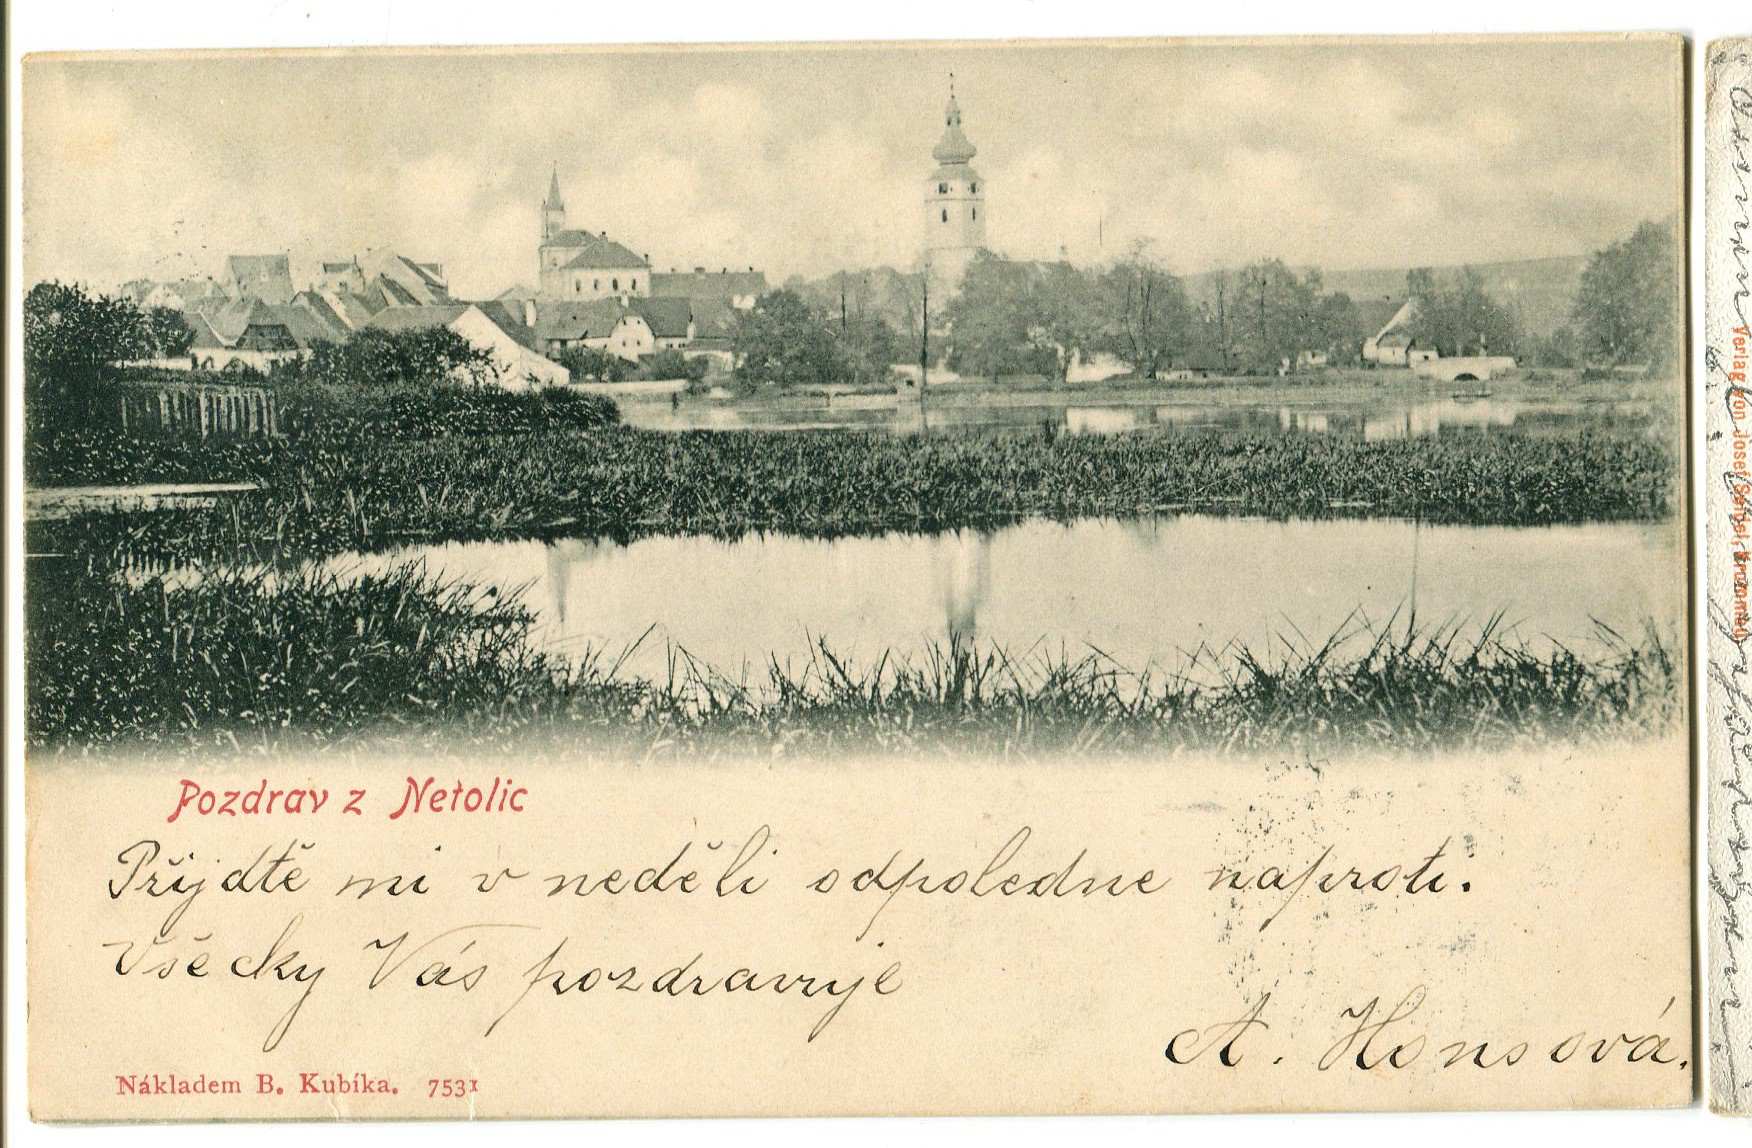 Pozdrav z Netolic
Přijdtě mi v neděli odpoledne naproti.
Všecky Vás pozdravuje
A. Honsová.
Nákladem B. Kubíka. 7531
Verlag von Josef Seidel, Krummau